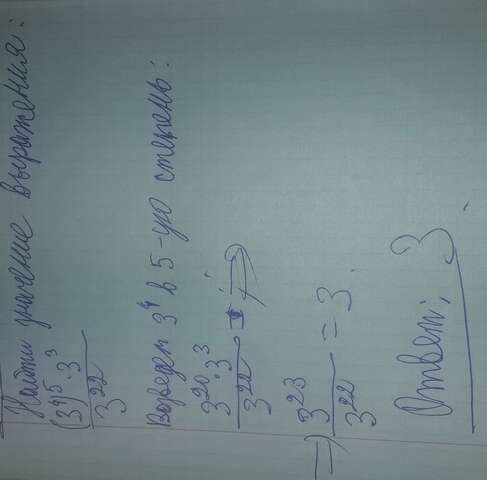 Найти значение выражения:
(3⁴)⁵·3³
3²²
Возведем 3⁴ в 5-ую степень:
3²⁰·3³
3²² ⇒
⇒ 3²³
3²² = 3.
Ответ: 3.